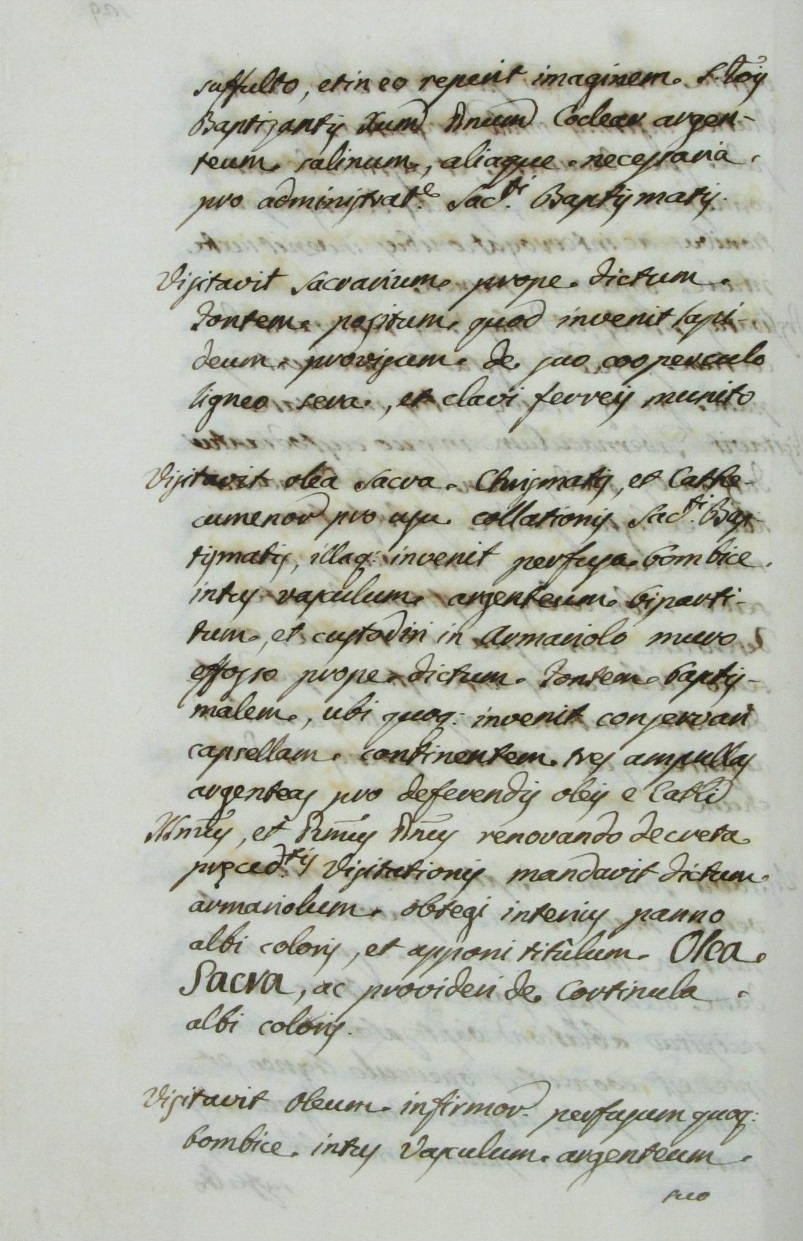 suffulto, et in eo reperit imaginem S. Io̅is
Baptizantis Xum̅ Dnum̅ Coclear argen-
teum salinum, aliaque necessaria
pro administrat.e Sac.ti Baptismatis.
Visitavit sacrarium prope dictum
Fontem positum quod invenit lapi-
deum provisum de suo cooperculo
ligneo sera, et clavi ferreis munito
Visitavit olea sacra Chrismatis, et Cathe-
cumenor pro usu collationis Sac.ti Bap-
tismatis, illaq: invenit perfusa bombice
intus vasculum argenteum biparti-
tum, et custodiri in Armariolo muro
effosso prope dictum Fontem baptis-
malem, ubi quoq: invenit conservari
capsellam continentem tres ampullas
argenteas pro deferendis oleis e Cathli
Illm̅us, et Rm̅us Dn̅us renovando decreta
pręced.tis Visitationis mandavit dictum
armariolum obtegi interius panno
albi coloris, et apponi titulum Olea
Sacra, ac provideri de Cortinula
albi coloris.
Visitavit Oleum infirmor perfusum quoq:
bombice intus Vasculum argenteum
suo